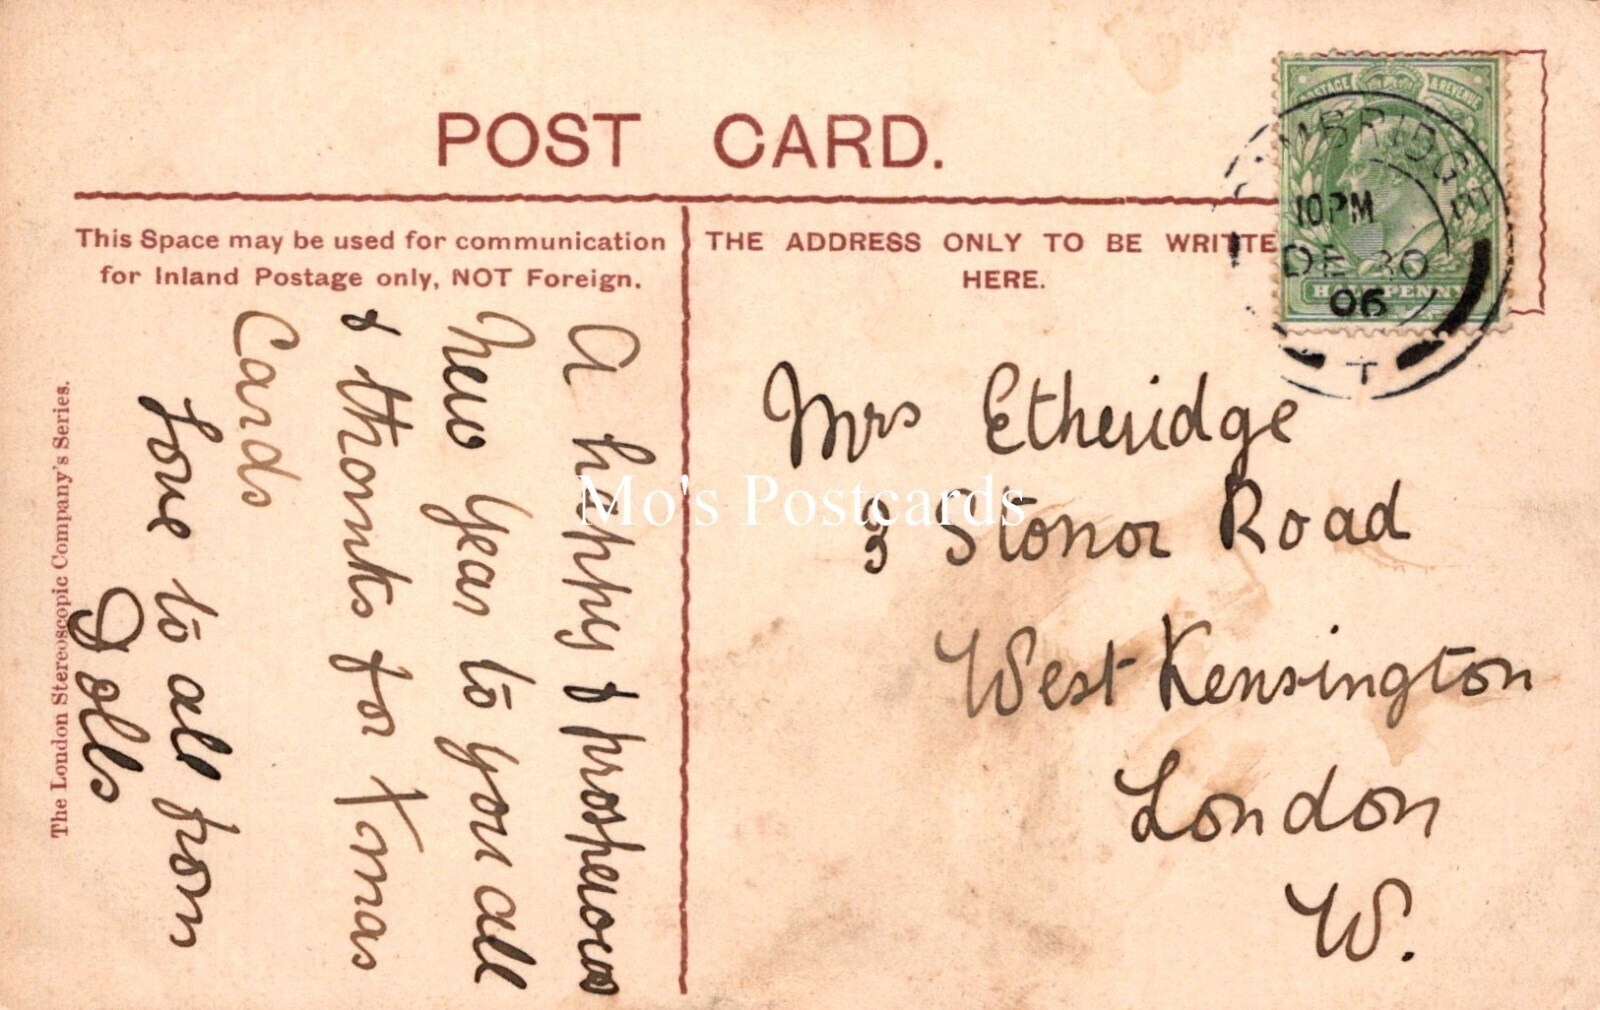 POST CARD.
This Space may be used for communication
for Inland Postage only, NOT Foreign.
THE ADDRESS ONLY TO BE WRITTE
HERE.
POSTAGE & REVENUE
HALFPENNY
MBRIDGE
10PM
DE 30
06
T
A happy & prosperous
New Year to you all
& thanks for Xmas
Cards
Love to all from
Dolls
Mrs Etheridge
3 Stonor Road
West Kensington
London
W.
The London Stereoscopic Company's Series.
Mo's Postcards